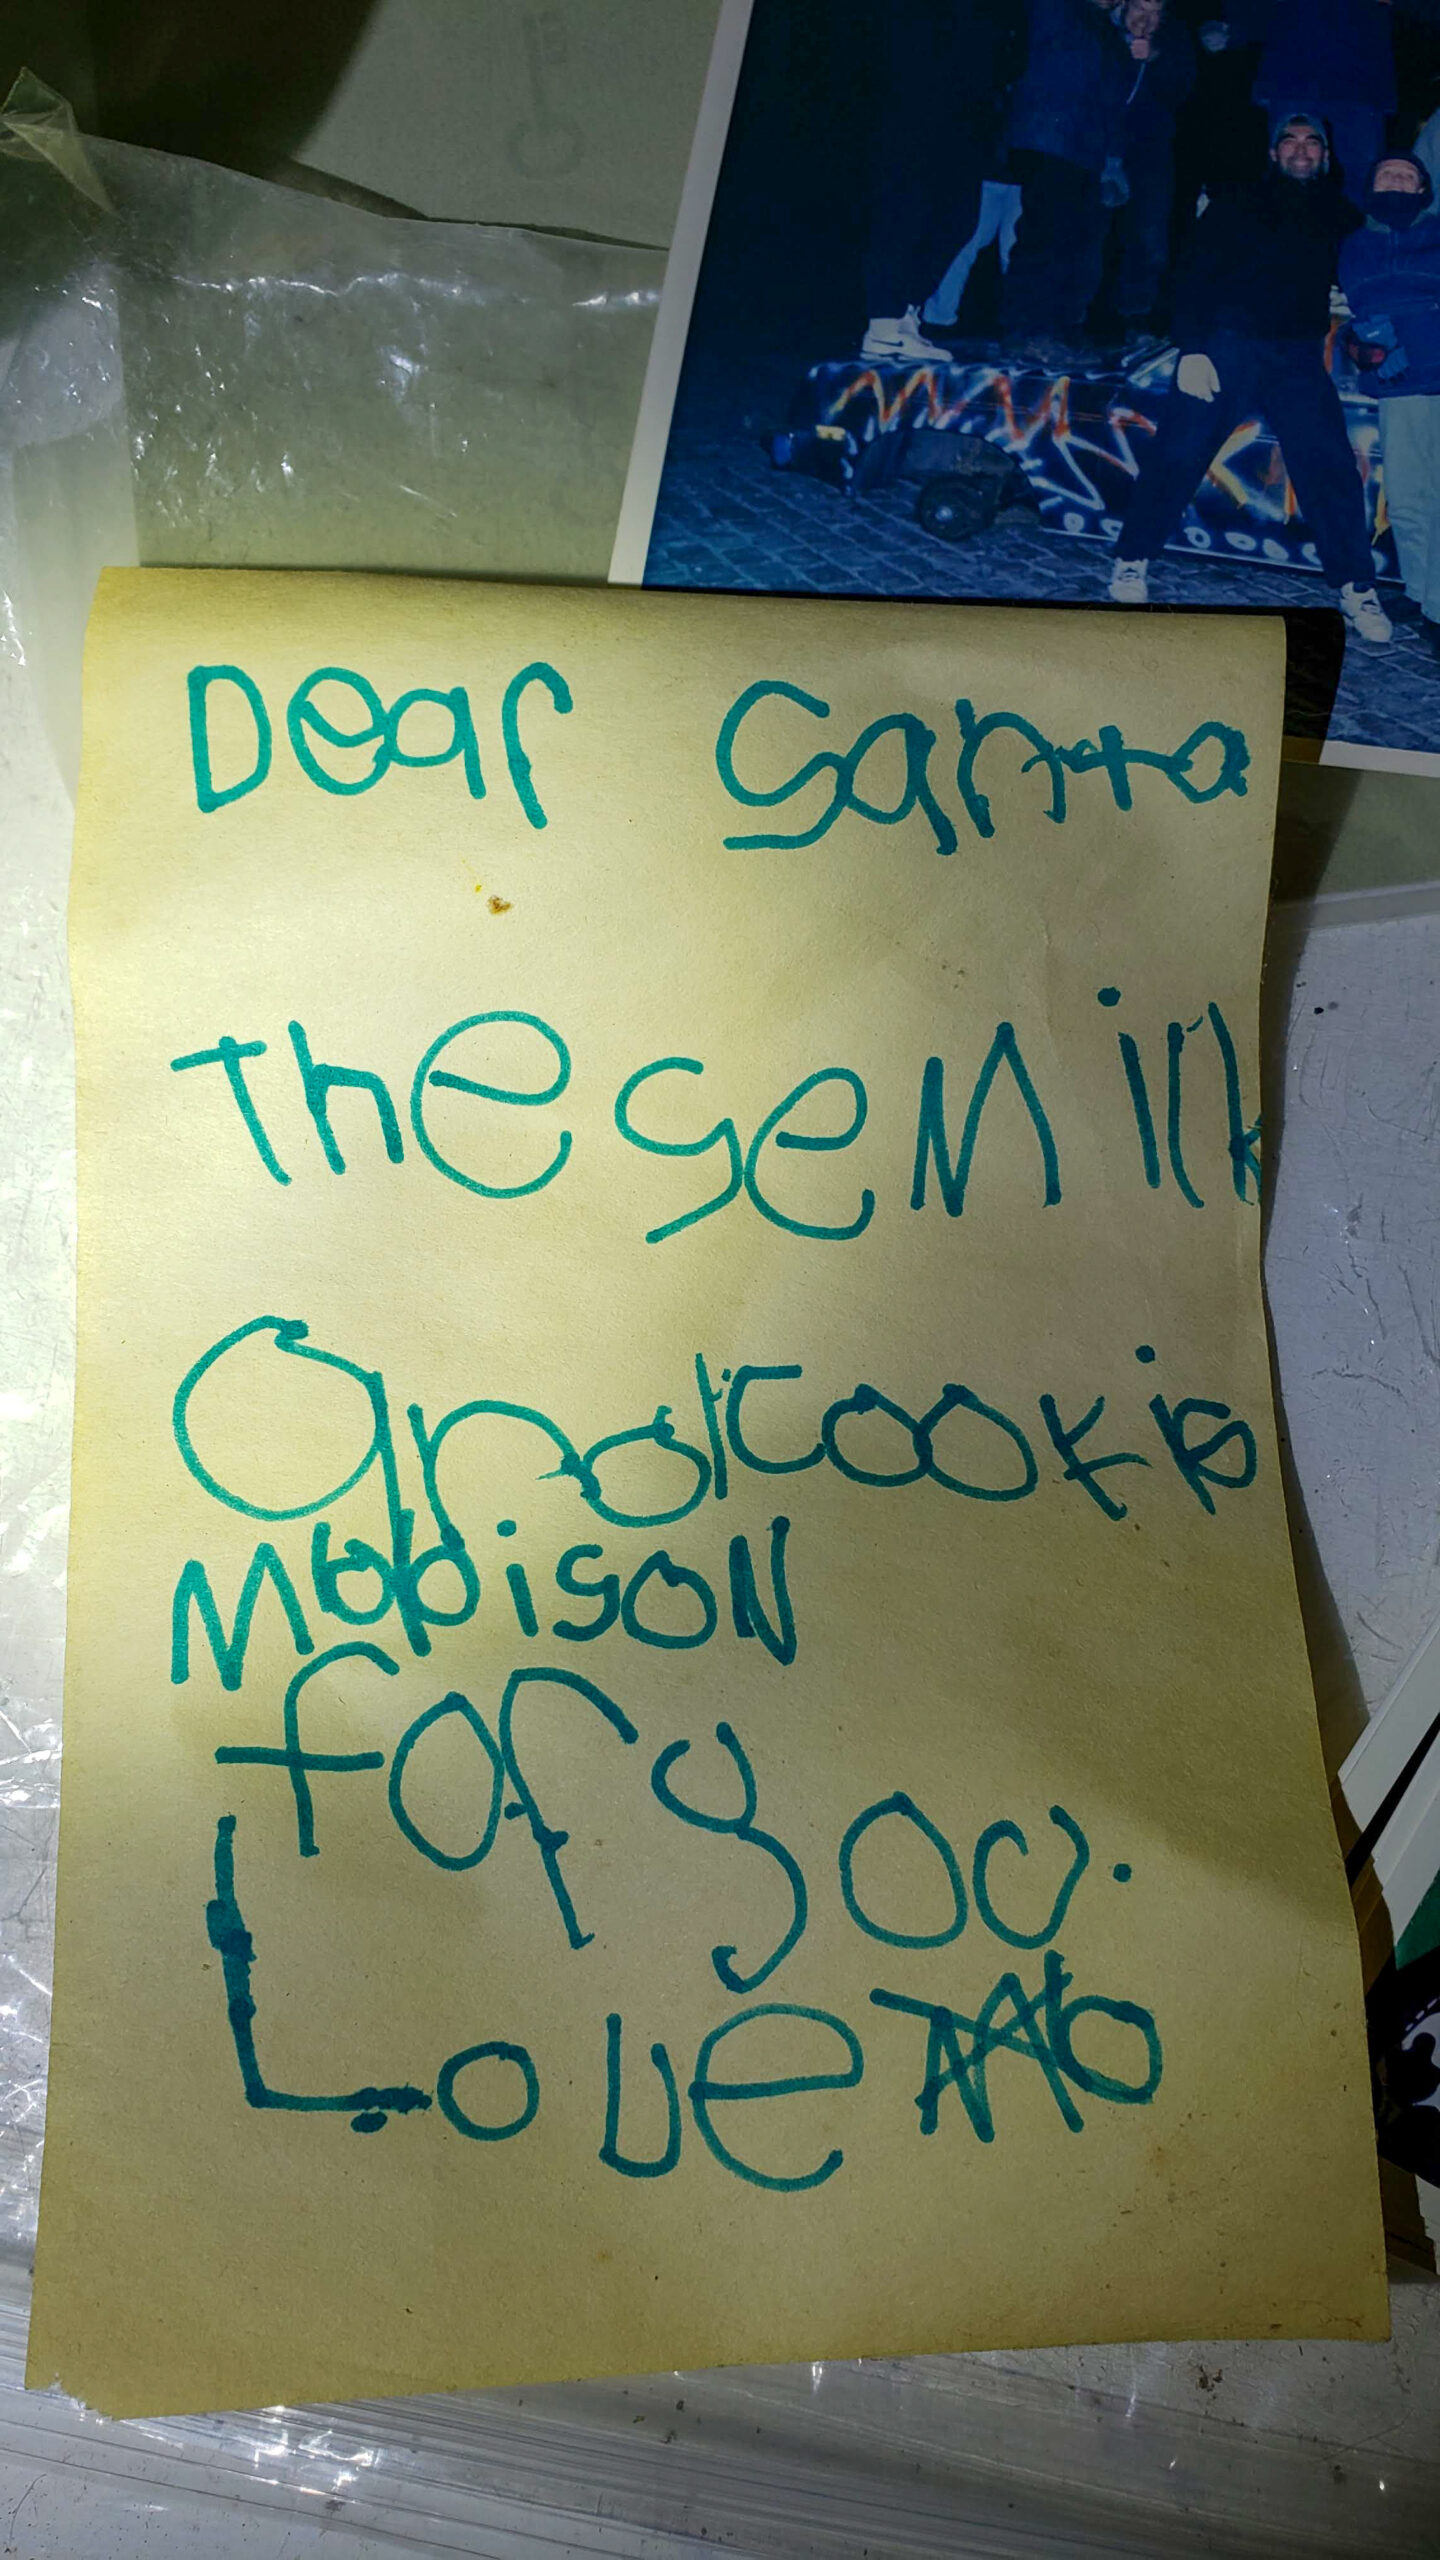 Dear Santa
These Milk
and cookis
MaDisoN
for you.
Love